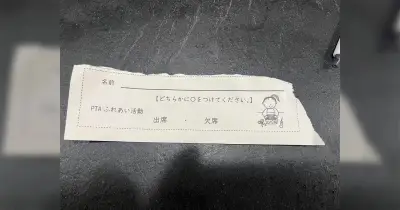 名前
【どちらかに〇をつけてください。】
PTAふれあい活動
出席 ・ 欠席